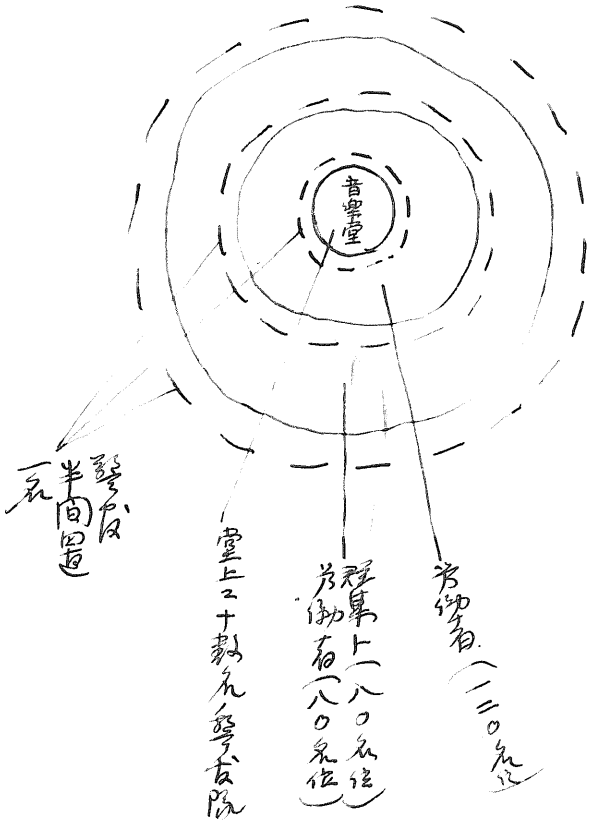 音楽堂
労働者(一二〇名位)
群集ト(八〇名位)
労働者(八〇名位)
堂上ニ十数名ノ警官隊
警官
半間置
一名